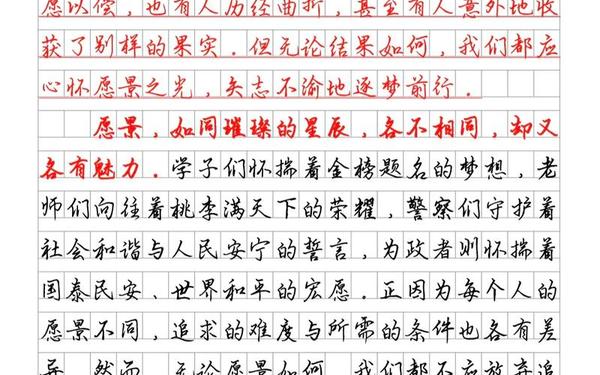 愿以偿，也有人历经曲折，甚至有人意外地收
获了别样的果实．但无论结果如何，我们都应
心怀愿景之光，矢志不渝地逐梦前行．
愿景，如同璀璨的星辰，各不相同，却又
各有魅力．学子们怀揣着金榜题名的梦想，老
师们向往着桃李满天下的荣耀，警察们守护着
社会和谐与人民安宁的誓言，为政者则怀揣着
国泰民安、世界和平的宏愿．正因为每个人的
愿景不同，追求的难度与所需的条件也各有差
异．然而，无论愿景如何，我们都不应放弃追